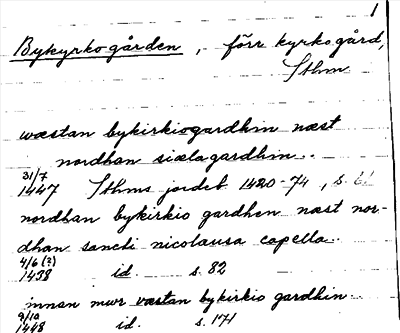 1
Bykyrkogården, förr kyrkogård,
Sthm
wæstan bykirkiogardhin næst
nordhan siælagardhin..
31/7
1447 Sthms jordeb 1420-74, s. 61
nordhan bykirkio gardhen næst nor-
dhan sancti nicolausa capella..
4/6 (?)
1438 id. s. 82
innan mwr væstan bykirkio gardhin..
9/10
1448 id. s. 171